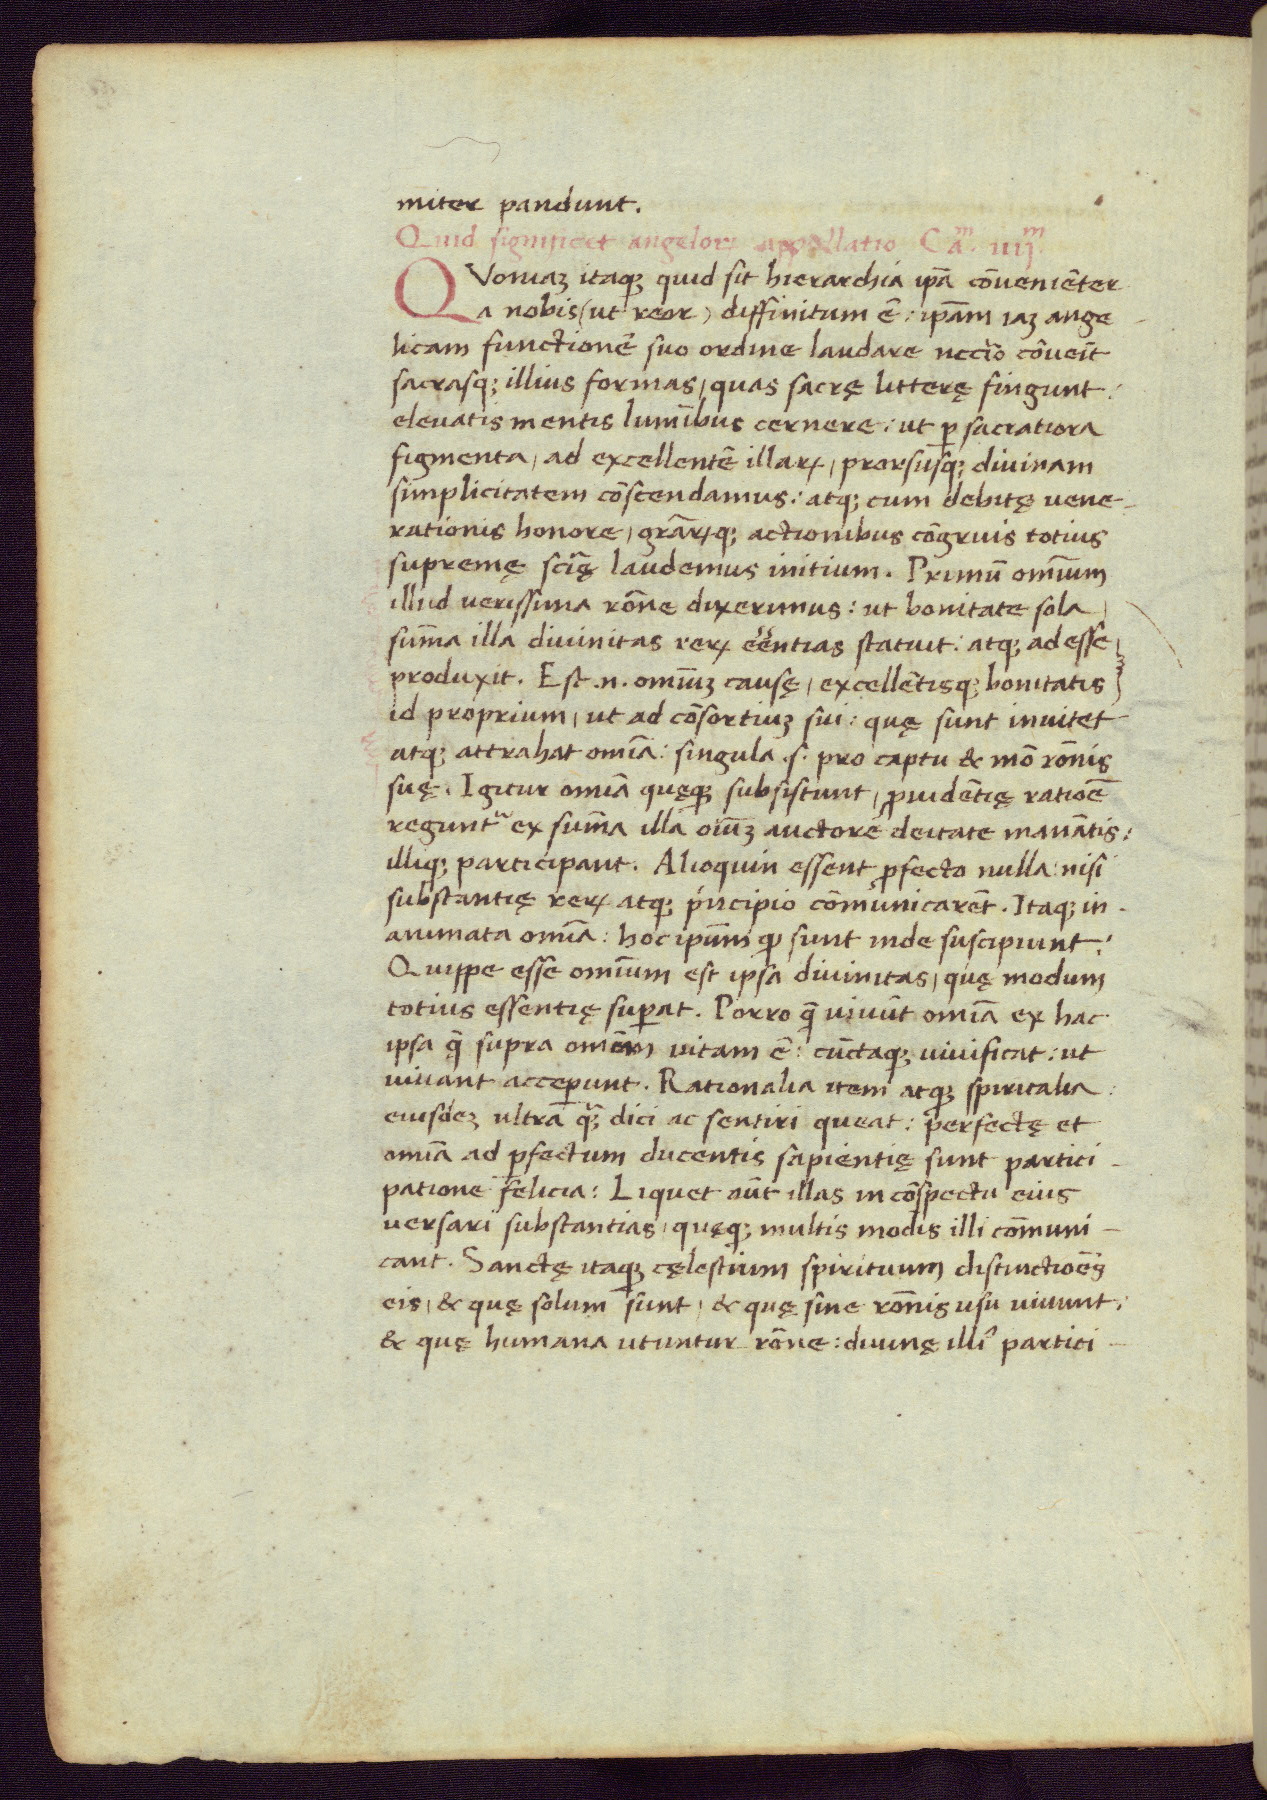 miter pandunt.
Quid significet angelorꝝ appellatio Ca.ᵐ iiij.ᵐ
QVoniaꝫ itaqꝫ quid sit hierarchia ip̄a cōueniēter
a nobis (ut reor) diffinitum ē: ip̄am iaꝫ ange-
licam functionē suo ordine laudare nccr̄io cōueīt
sacrasqꝫ illius formas, quas sacrę litterę fingunt:
eleuatis mentis lumībus cernere: ut ꝑ sacratiora
figmenta, ad excellentē illarꝝ, prorsusqꝫ diuinam
simplicitatem cōscendamus: atqꝫ cum debitę uene-
rationis honore, grār̄ꝝqꝫ actionibus cōgruis totius
supremę scię̄ laudemus initium. Primū omīum
illud uerissima rōne dixerimus: ut bonitate sola,
sum̄a illa diuinitas rerꝝ eēntias statuit: atqꝫ ad esse,
produxit. Est .n. omīuꝫ causę, excellētisqꝫ bonitatis
id proprium, ut ad cōsortiuꝫ sui: quę sunt inuitet
atqꝫ attrahat omīa: singula .s. pro captu & mō rōnis
suę. Igitur omīa quęqꝫ subsistunt, ꝓuidētię ratioē
regunt᷑ ex sum̄a illa oīuꝫ auctore deitate manātis:
illiqꝫ participant. Alioquin essent ꝓfecto nulla: nisi
substantię rerꝝ atqꝫ pⁱncipio cōmunicarēt. Itaqꝫ in-
animata omīa: hoc ip̄um ꝙ sunt inde suscipiunt:
Quippe esse omīum est ipsa diuinitas, quę modum
totius essentię suꝑat. Porro q̄ uiuūt omīa ex hac
ipsa q̄ supra omēm uitam ē: cūctaqꝫ uiuificat: ut
uiuant acceꝑunt. Rationalia item atqꝫ spiritalia:
eiusdeꝫ ultra q̄ꝫ dici ac sentiri queat: perfectę et
omīa ad ꝑfectum ducentis sapientię sunt partici-
patione felicia: Liquet aūt illas in cōspectu eius
uersari substantias, quęqꝫ multis modis illi cōmuni-
cant. Sanctę itaqꝫ cęlestium spirituum distinctioēs
eis, & quę solum sunt, & quę sine rōnis usu uiuunt,
& quę humana utuntur rōne: diuinę illiꝰ partici-